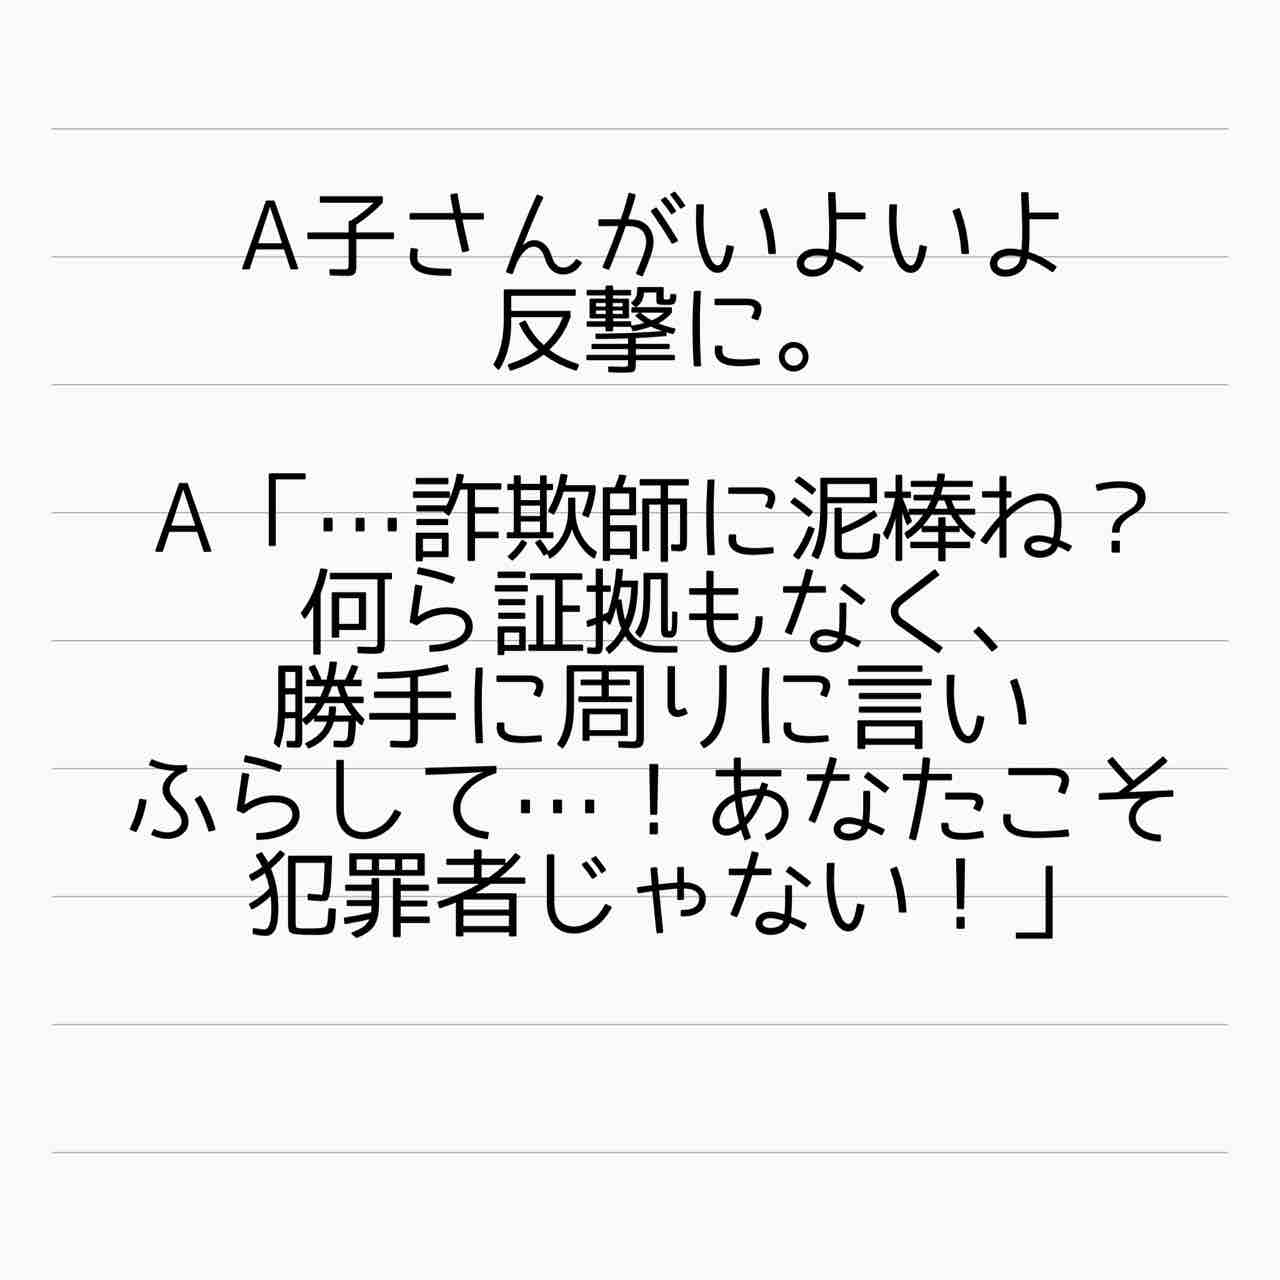 A子さんがいよいよ
反撃に。
A「…詐欺師に泥棒ね？
何ら証拠もなく、
勝手に周りに言い
ふらして…！あなたこそ
犯罪者じゃない！」